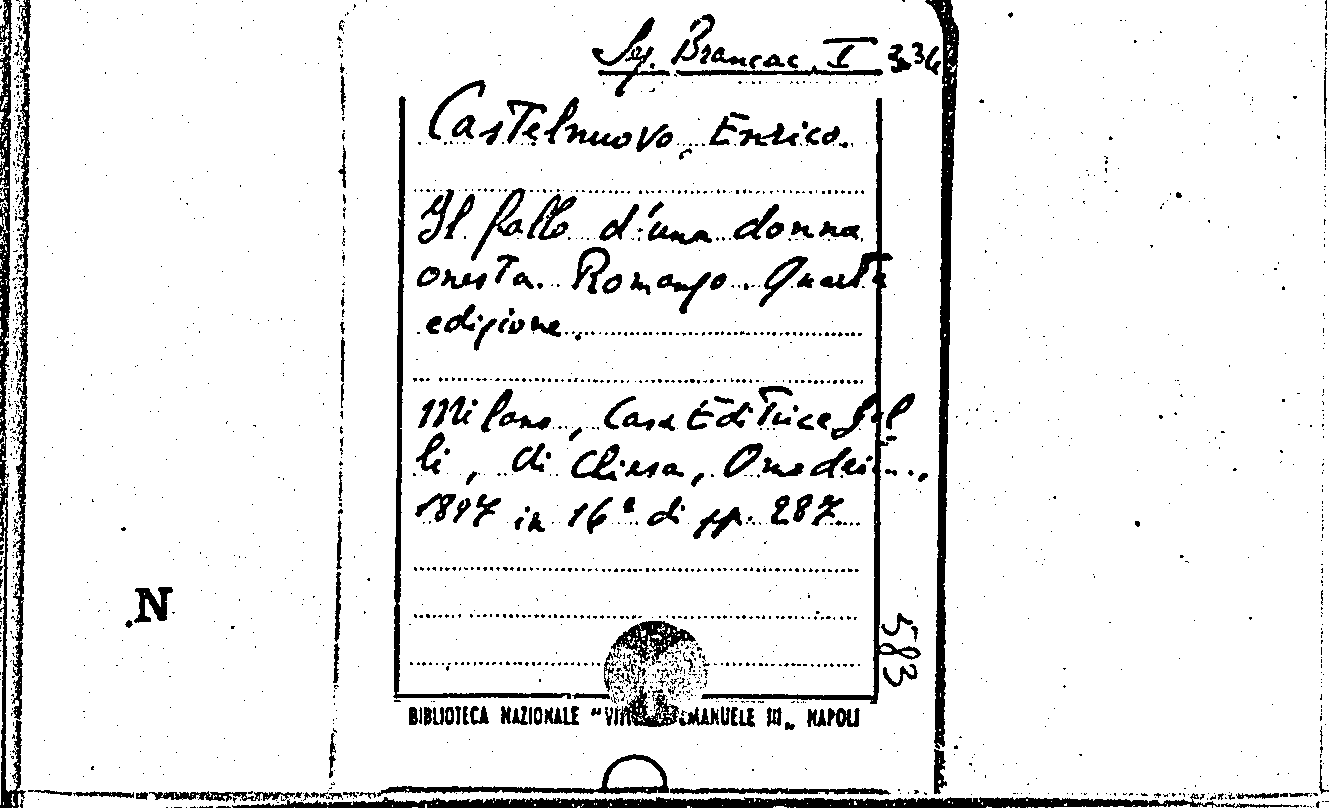 Brancac. I
Castelnuovo, Enrico.
Il fallo d'una donna
onesta. Romanzo. Quarta
edizione.
Milano, Casa Editrice Gal
li, di Chiesa, Omodei...,
1897 in 16° di pp. 287.
583
N
BIBLIOTECA NAZIONALE "VITT EMANUELE III„ NAPOLI